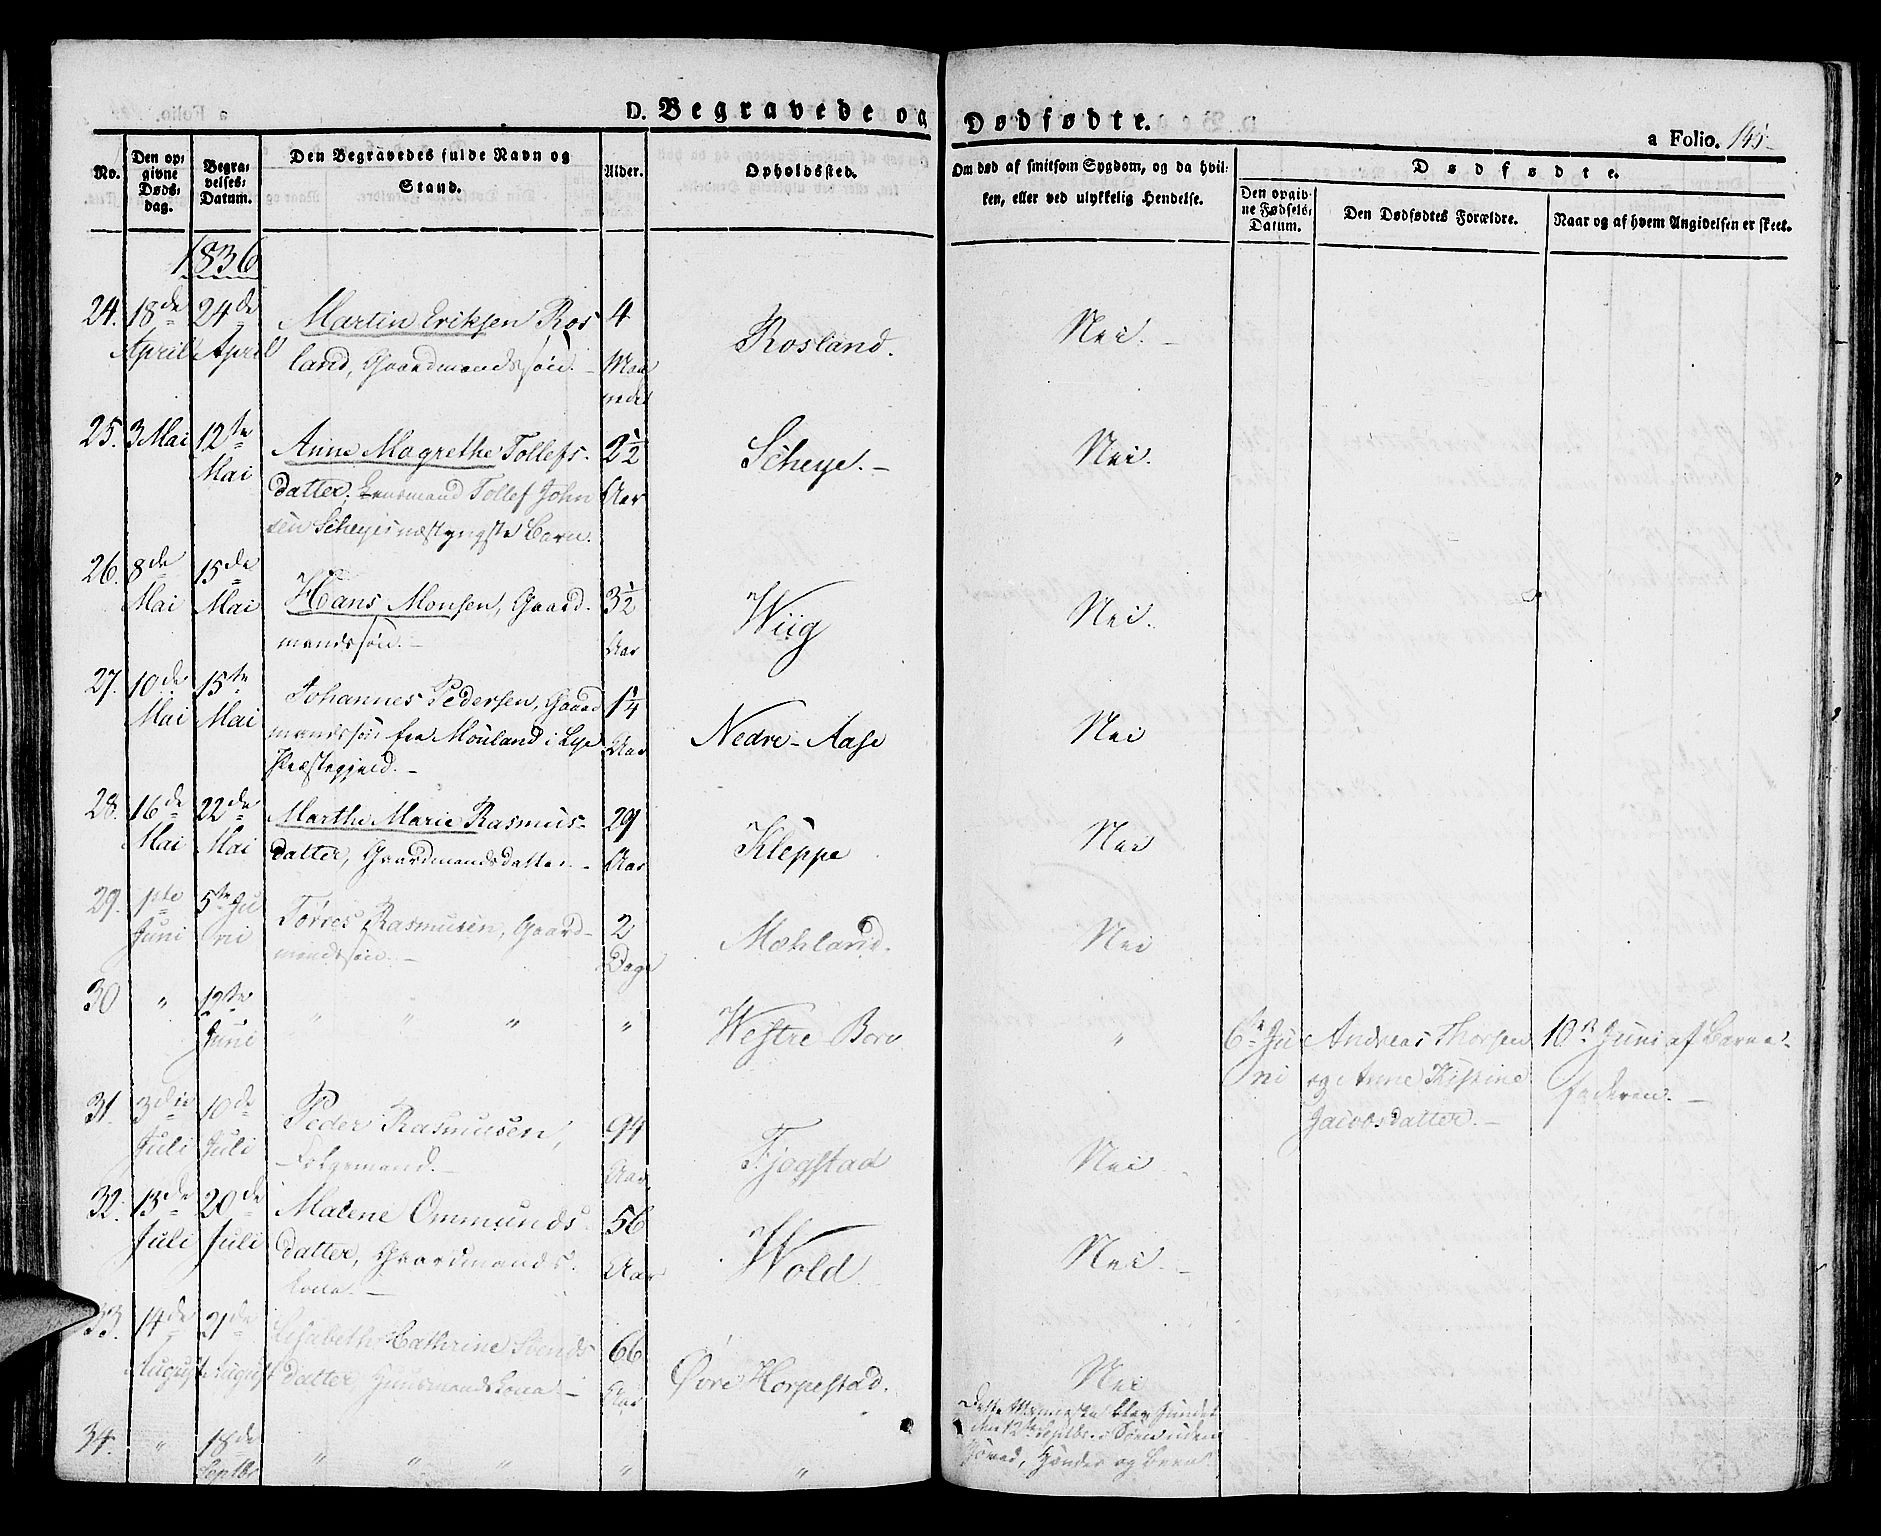 D. Begravede og Dødfødte.
a Folio. 145.
No.
Den opgivne Døds-dag.
Begravelses-Datum.
Den Begravedes fulde Navn og Stand.
Alder.
Opholdssted.
Om død af smitsom Sygdom, og da hvilken, eller ved ulykkelig Hendelse.
Dødfødte.
Den opgivne Fødsels-Datum.
Den Dødfødtes Forældre.
Naar og af hvem Angivelsen er skeet.
1836
24. 18de April 24de April Martin Eriksen Ros
land, Gaardmandssøn. – 4 Maaneder Rosland. Nei. –
25. 3 Mai 12te Mai Anne Magrethe Tollefs-
datter, Lensmand Tollef John
sen Scheyes næstyngste Barn. 2½ Aar Scheye. – Nei.
26. 8de Mai 15de Mai Hans Monsen, Gaard-
mandssøn. – 3½ Aar Wiig Nei.
27. 10de Mai 15te Mai Johannes Pedersen, Gaard
mandssøn fra Mouland i Lye
Præstegjeld. – 1¼ Aar Nedre-Aase Nei
28. 16de Mai 22de Mai Marthe Marie Rasmus-
datter, Gaardmandsdatter. – 29 Aar Kleppe Nei
29. 1ste Juni 5te Juni Tørres Rasmusen, Gaard-
mandssøn. – 2 Dage Mæhland. Nei
30 " 12te Juni " " " " Westre Bore " 6te Juni Andreas Thorsen
og Anne Kistine
Jacobsdatter. – 10de Juni af Barne-
faderen. –
31. 3die Juli 10de Juli Peder Rasmusen,
Folgemand. – 94 Aar Fjogstad Nei
32. 13de Juli 20de Juli Malene Ommunds-
datter, Gaardmands-
kone. – 56 Aar Wold Nei. –
33. 14de August 21de August Elisabeth Cathrine Svends
datter Huusmandskone. – 66 Aar Øvre Horpestad. Nei
34. " 18de Septbr " " " " " Dette Menneske blev fundet
den 12te Septbr. i Søen uden
Hoved, Hænder og Been.